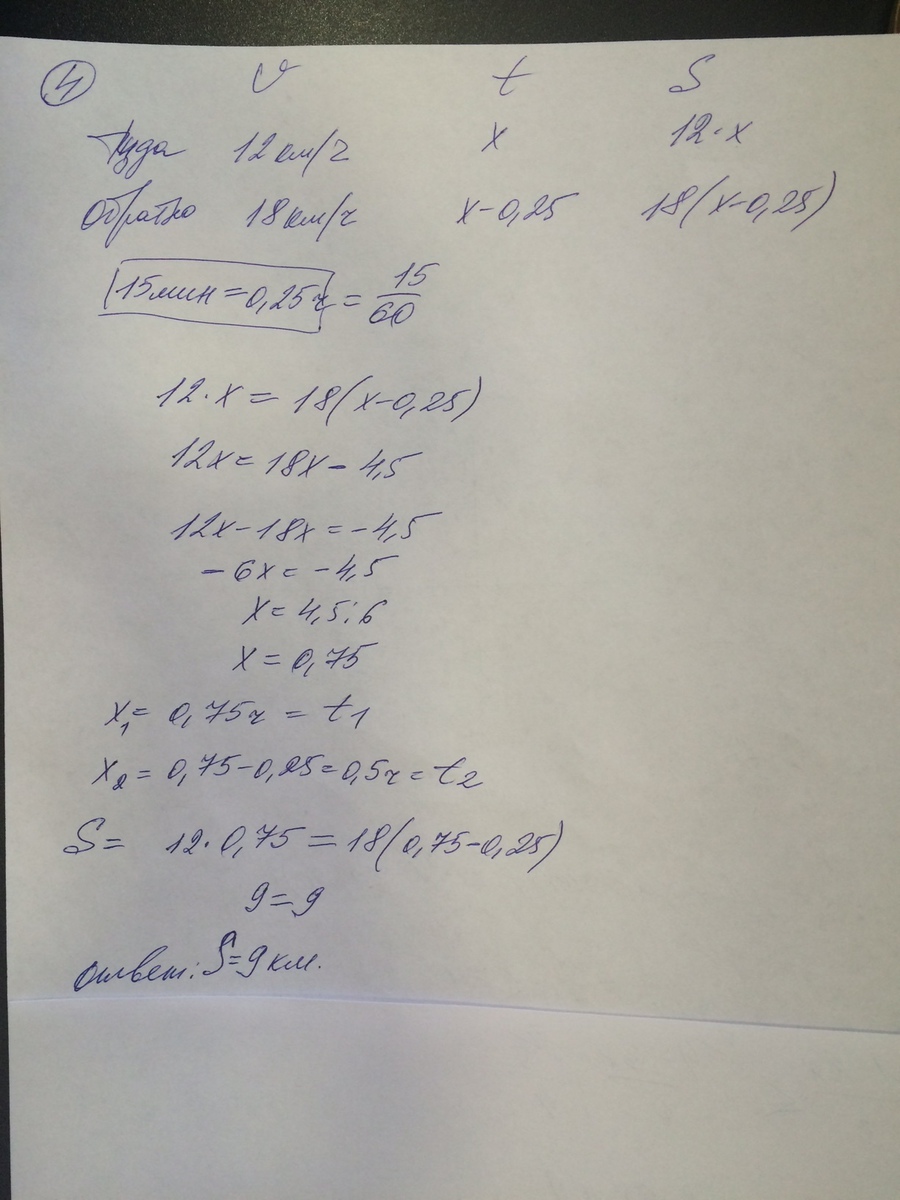 4 V t S
Туда 12 км/ч x 12·x
Обратно 18 км/ч x-0,25 18(x-0,25)
15 мин = 0,25 ч = 15/60
12·x = 18(x-0,25)
12x = 18x - 4,5
12x - 18x = -4,5
-6x = -4,5
x = 4,5:6
x = 0,75
x₁ = 0,75 ч = t₁
x₂ = 0,75-0,25 = 0,5 ч = t₂
S = 12·0,75 = 18(0,75-0,25)
9 = 9
ответ: S = 9 км.